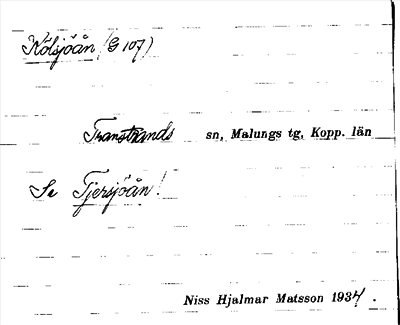 Kölsjöån (G 107)
Transtrands sn, Malungs tg, Kopp. län
Se Tjersjöån!
Niss Hjalmar Matsson 1934.